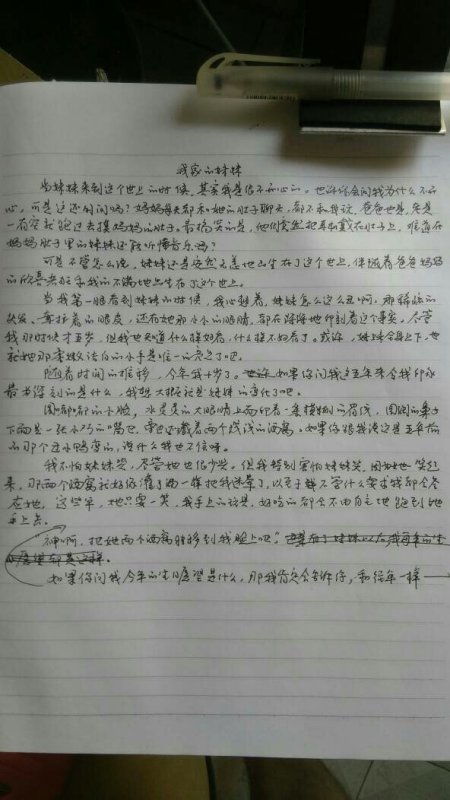 我家的妹妹
当妹妹来到这个世上的时候,其实我是很不开心的。也许你会问我为什么不开
心,可是这还用问吗?妈妈每天都和她的肚子聊天,都不和我说,爸爸也是,总是
一有空就跑过去摸妈妈的肚子。最搞笑的是,他们竟然把耳机戴在肚子上,难道在
妈妈肚子里的妹妹还能听懂音乐吗?
可是不管怎么说,妹妹还是安然无恙地出生在了这个世上,伴随着爸爸妈妈
的欣喜和我的不满地出生在了这个世上。
当我第一眼看到妹妹的时候,我心想着,妹妹怎么这么丑啊,那稀疏的
头发、耷拉着的眼皮,还有她那小小的眼睛,都在深深地印刻着这个事实。尽管
我那时候才五岁,但我也知道什么樣好看,什么樣不好看了。或许,妹妹全身上下,也
就她那柔嫩洁白的小手是唯一的亮点了吧。
随着时间的推移,今年我十岁了。如果你问我这五年来令我印象
最为深刻的是什么,我想大概就是妹妹的变化了吧。
圆嘟嘟的小脸,水灵灵的大眼睛上面印着一条
下面是一张小巧的嘴巴,旁边还藏着两个浅浅的酒窝。如果你跟我说这是五年前
的那个丑小鸭变的,说什么我也不信呀。
我不怕妹妹哭,尽管她也很少哭。但我特别害怕妹妹笑,因为她一笑起
来,那两个酒窝就好像灌了酒一样把我迷晕了,以至于无论什么要求我都会答
应她。这些年,她只要一笑,我手上的玩具,好吃的都会不由自主地跑到她
手上去。
神啊,把她两个酒窝转移到我脸上吧!
如果你问我今年的生日愿望是什么,那我肯定会告诉你,和往年一样——